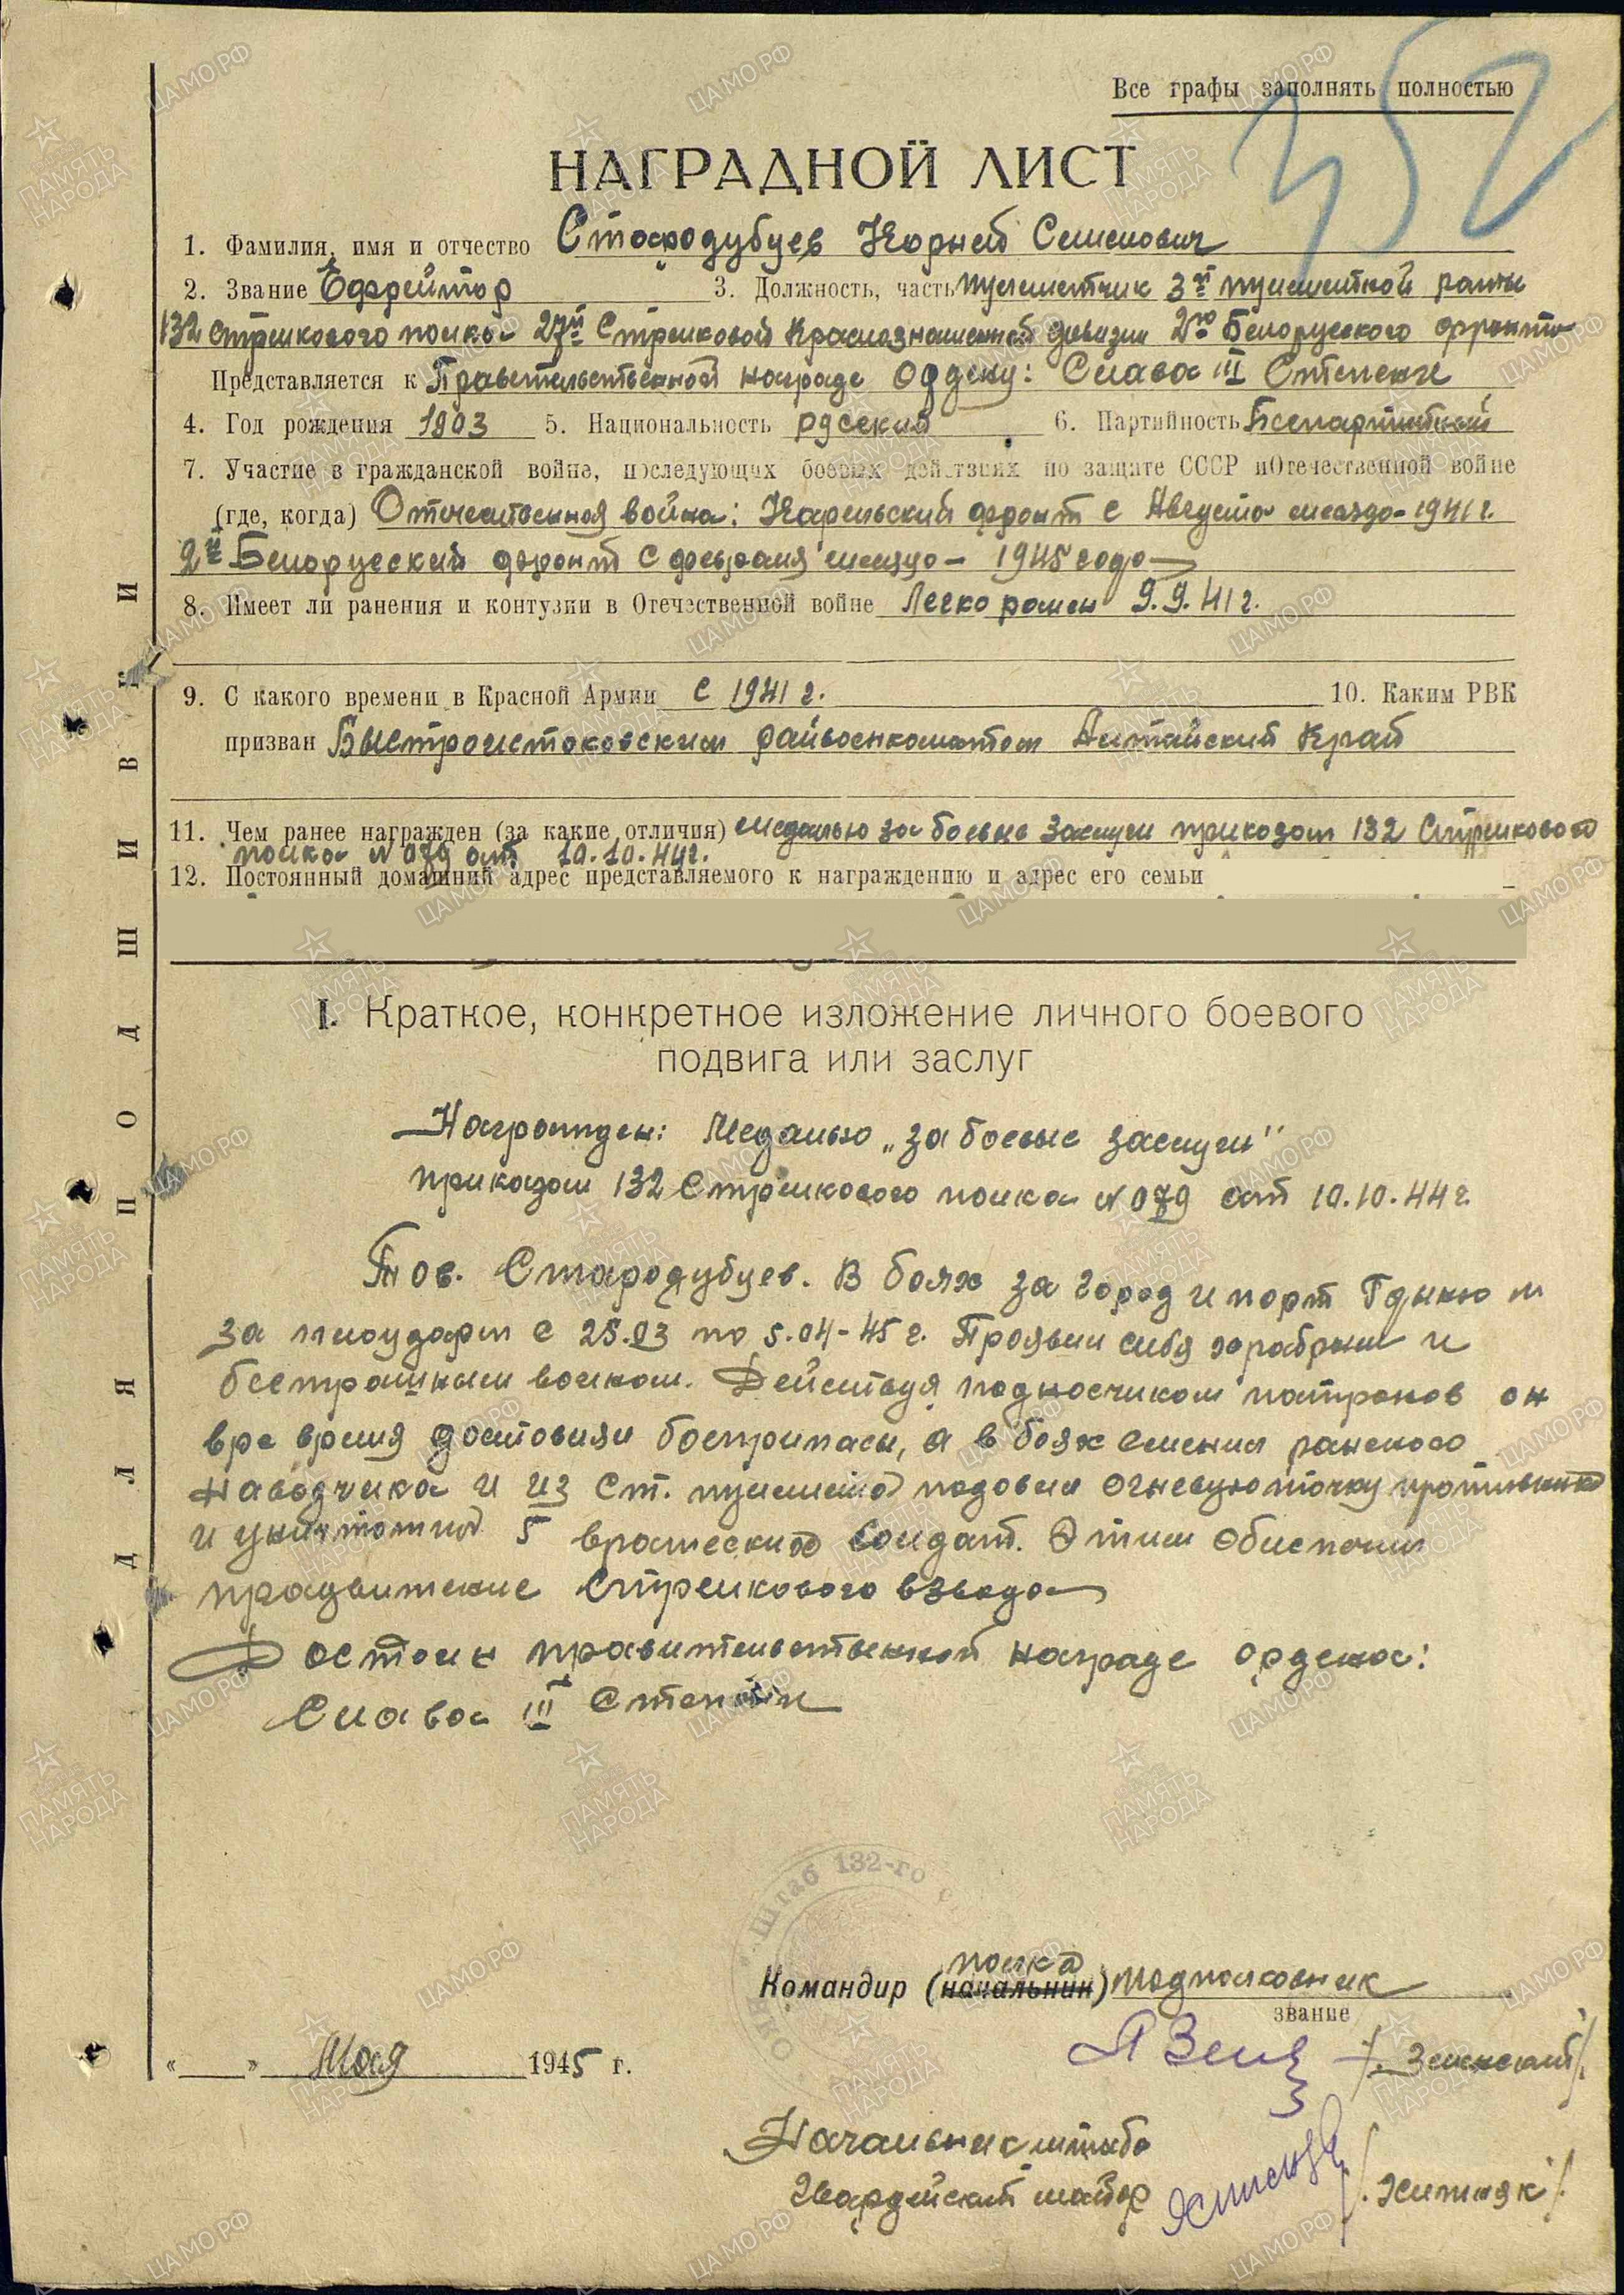 Все графы заполнять полностью
352
НАГРАДНОЙ ЛИСТ
1. Фамилия, имя и отчество Стародубцев Корней Семенович
2. Звание Ефрейтор 3. Должность, часть пулеметчик 3й пулеметной роты
132 стрелкового полка 27й Стрелковой Краснознаменной дивизии 2го Белорусского фронта
Представляется к Правительственной награде Ордену: Слава III Степени
4. Год рождения 1903 5. Национальность русский 6. Партийность Беспартийный
7. Участие в гражданской войне, последующих боевых действиях по защите СССР и Отечественной войне
(где, когда) Отечественная война: Карельский фронт с Августа месяца - 1941 г.
2й Белорусский фронт с февраля месяца - 1945 года
8. Имеет ли ранения и контузии в Отечественной войне Легко ранен 9.9.41 г.
9. С какого времени в Красной Армии с 1941 г. 10. Каким РВК
призван Быстроистокским райвоенкоматом Алтайский Край
11. Чем ранее награжден (за какие отличия) медалью за боевые заслуги приказом 132 Стрелкового
полка N 079 от 10.10.44г.
12. Постоянный домашний адрес представляемого к награждению и адрес его семьи
I. Краткое, конкретное изложение личного боевого
подвига или заслуг
Награжден: Медалью „за боевые заслуги"
приказом 132 Стрелкового полка N 079 от 10.10.44 г.
Тов. Стародубцев. В боях за город и порт Гдыню и
за плацдарм с 25.03 по 5.04-45 г. Проявил себя храбрым и
бестрашным воином. Действуя подносчиком патронов он
вре время доставлял боеприпасы, а в боях сменил раненого
наводчика и из ст. пулемета подовил огневую точку противника
и уничтожил 5 вражеских солдат. Этим обиспечил
продвижение стрелкового взвода
Достоин правительственной награде ордена:
Слава III Степени
Штаб 132-го
полка
Командир (начальник) подполковник
звание
« » Мая 1945 г.
/Зеленский/
Начальник штаба
Гвардейский майор /Хижняк/
ДЛЯ ПОДШИВКИ
ПАМЯТЬ НАРОДА
ЦАМО.РФ